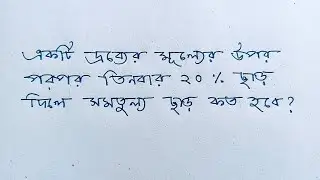 একটি দ্রব্যের মূল্যের উপর
পরপর তিনবার ২০% ছাড়
দিলে সমতুল্য ছাড় কত হবে?